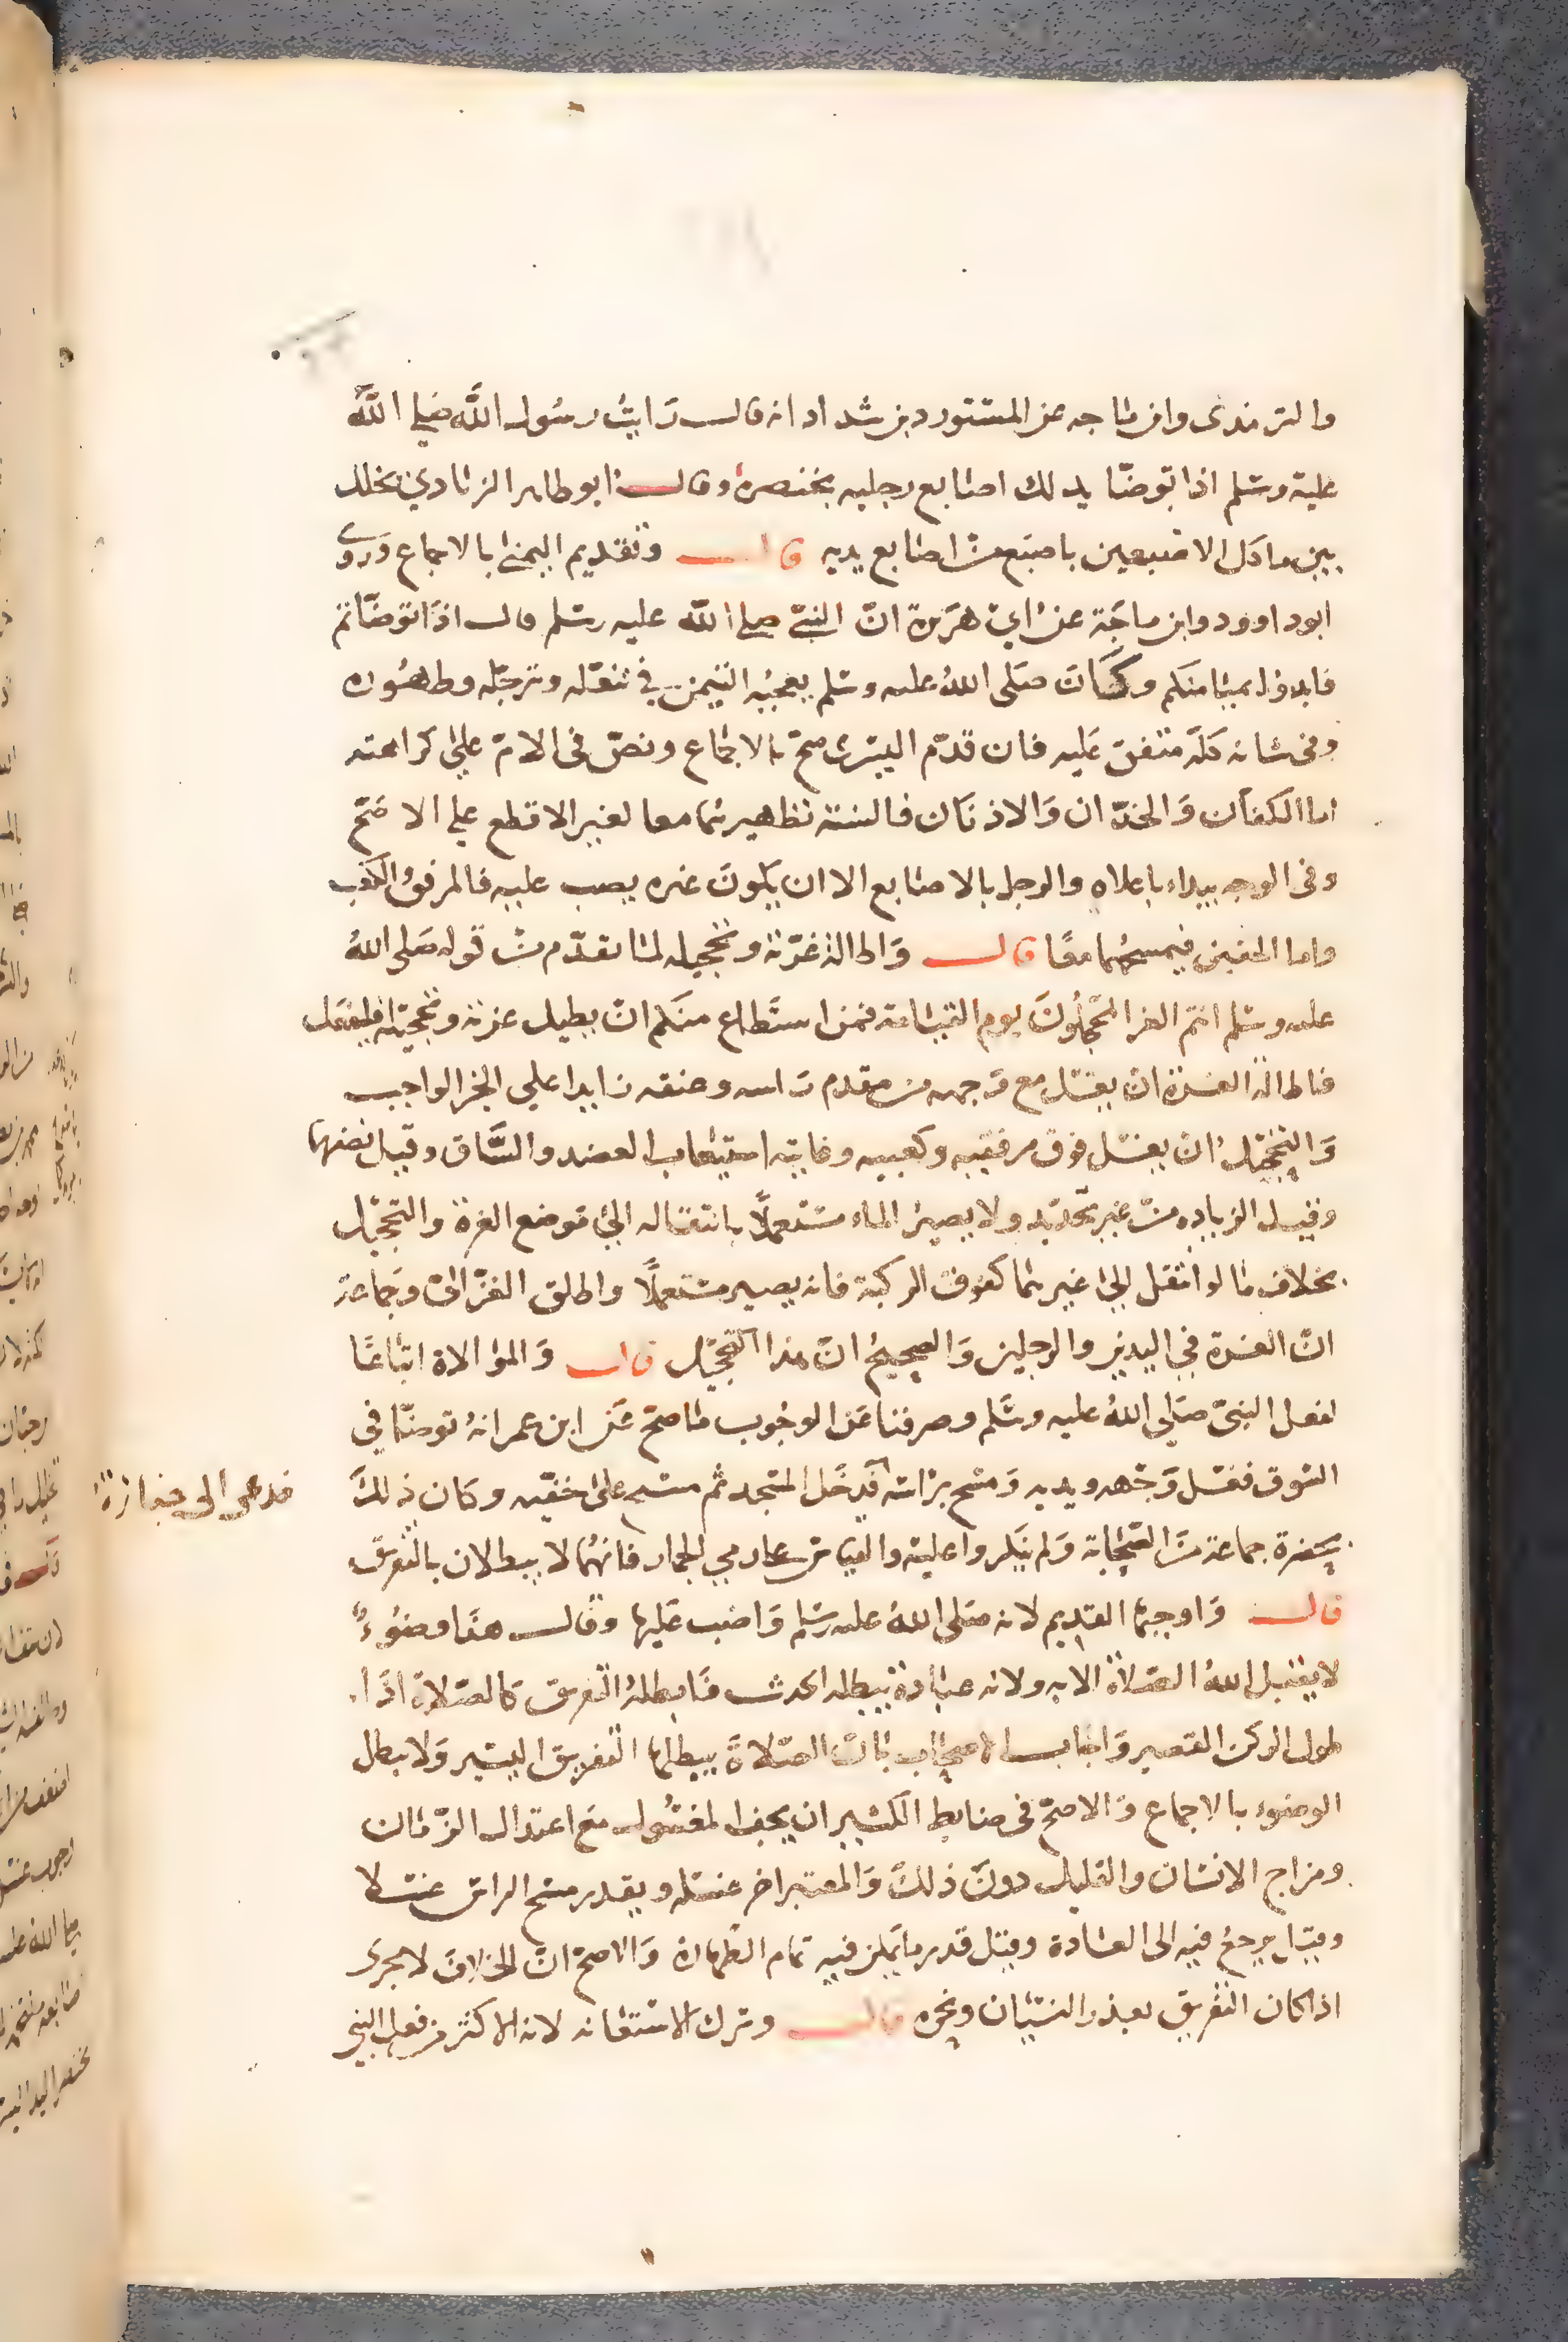 والترمذى وابن ماجه عن المستورد بن شداد انه قال رَايتُ رسُول اللَّه صَلى اللَّهُ
عليه وسَلم اذا توضّا يدلك اصَابع رجليه بخنصره وقال ابو طاهر الزيادي يخلل
بين ماكل الاصبعين باصبَع من اصَابع يديه قال وتقديم اليمنى بالاجماع وَروى
ابوداوود وابن ماجَة عن ابي هرَيرة انّ النبىّ صلى اللّه عليه وسَلم قال اذَا توضّاتم
فابدؤا بميَامنكم وكَانَ صَلى اللهُ عليه وسَلم يعجبُه التيمن في تنعّله وترجّله وطهُوره
وفى شانه كلّه متفق عَليه فان قدّم اليسَرى صحّ بالاجَماع ونصّ فى الامّ علي كراهته
اما الكفان وَالخدّان وَالاذنَان فالسنة تطهيرهُما معا لغير الاقطع علي الاصَحّ
وفى الوجه يبداء باعلاه والرجل بالاصَابع الا ان يكونَ غيره يصب عليه فالمرفق والكعب
واما الخفين فيمسحُهما معًا قال وَاطالة غرّته وتحجيله لمَا تقدّم من قوله صَلى اللهُ
عليه وسَلم انتم الغر المحَجلُونَ يوم القيَامة فمن استَطاع منكم انْ يطيل غرته وتحجيله فليفعَل
فاطالة الغرة ان يغسَل مع وَجهه من مقدم رَاسه وعنقه زايدا علي الجز الواجب
وَالتحجيل ان يغسَل فوق مرفقيه وكعبيه وغايته استيعاب العضد والسَّاق وقيل نصفهما
وقيل الزياده من غير تحديد ولا يصير الماء مستعملًا بانتقاله الي موضع الغرة والتحجيل
بخلاف مَا لو انتقل الي غيرهَما كفوق الركبة فانه يصير مستعملًا واطلق الغزّالي وجَماعة
انّ الغرة في اليدين والرجلين وَالصحيحُ انّ هذا التحجيل قال وَالموالاة اتباعًا
لفعل النبىّ صَلى اللهُ عليه وسَّلم وصرفنا عَن الوجُوب مَا صحّ عَن ابن عمر انهُ توضّا في
السوق فغسَل وَجَهه ويديه وَمسَح برَاسه فدخَل المسَجد ثم مسَح علي خفّيه وكان ذلكَ
فدعى الى جنازة
بحضرة جماعة من الصّحَابة وَلم ينكروا عليه والقياس على رمي الجمار فانهُما لا يبطلان بالتفريق
قال وَاوجبهَا القديم لانه صَلى اللهُ عليه وسَلم وَاضب عَليها وقال هذَا وضُوءٌ
لا يقبل اللهُ الصَلاة الا به ولانه عبَادة يبطله الحدث فابطلهُ التفريق كالصَلاة اذَا
طول الركن القصير وَاجاب الاصحَاب بانّ الصَلاةَ يبطلها التفريق اليسير وَلا يبطل
الوضوء بالاجماع وَالاصحّ فى ضابط الكثير ان يجف المغسُول مَع اعتدال الزمَان
ومزاج الانسَان والقليل دونَ ذلكَ وَالمعتبر اخر غسَله ويقدر مسَح الراس غسَلا
وقيَل يرجعُ فيه الى العَادة وقيل قدر ما يمكن فيه تمام الطهارة وَالاصحّ انّ الخلافَ لا يجرى
اذا كان التفريق بعذر النسيَان ونحوه قال وترك الاستعانه لانه الاكثر من فعل النبي